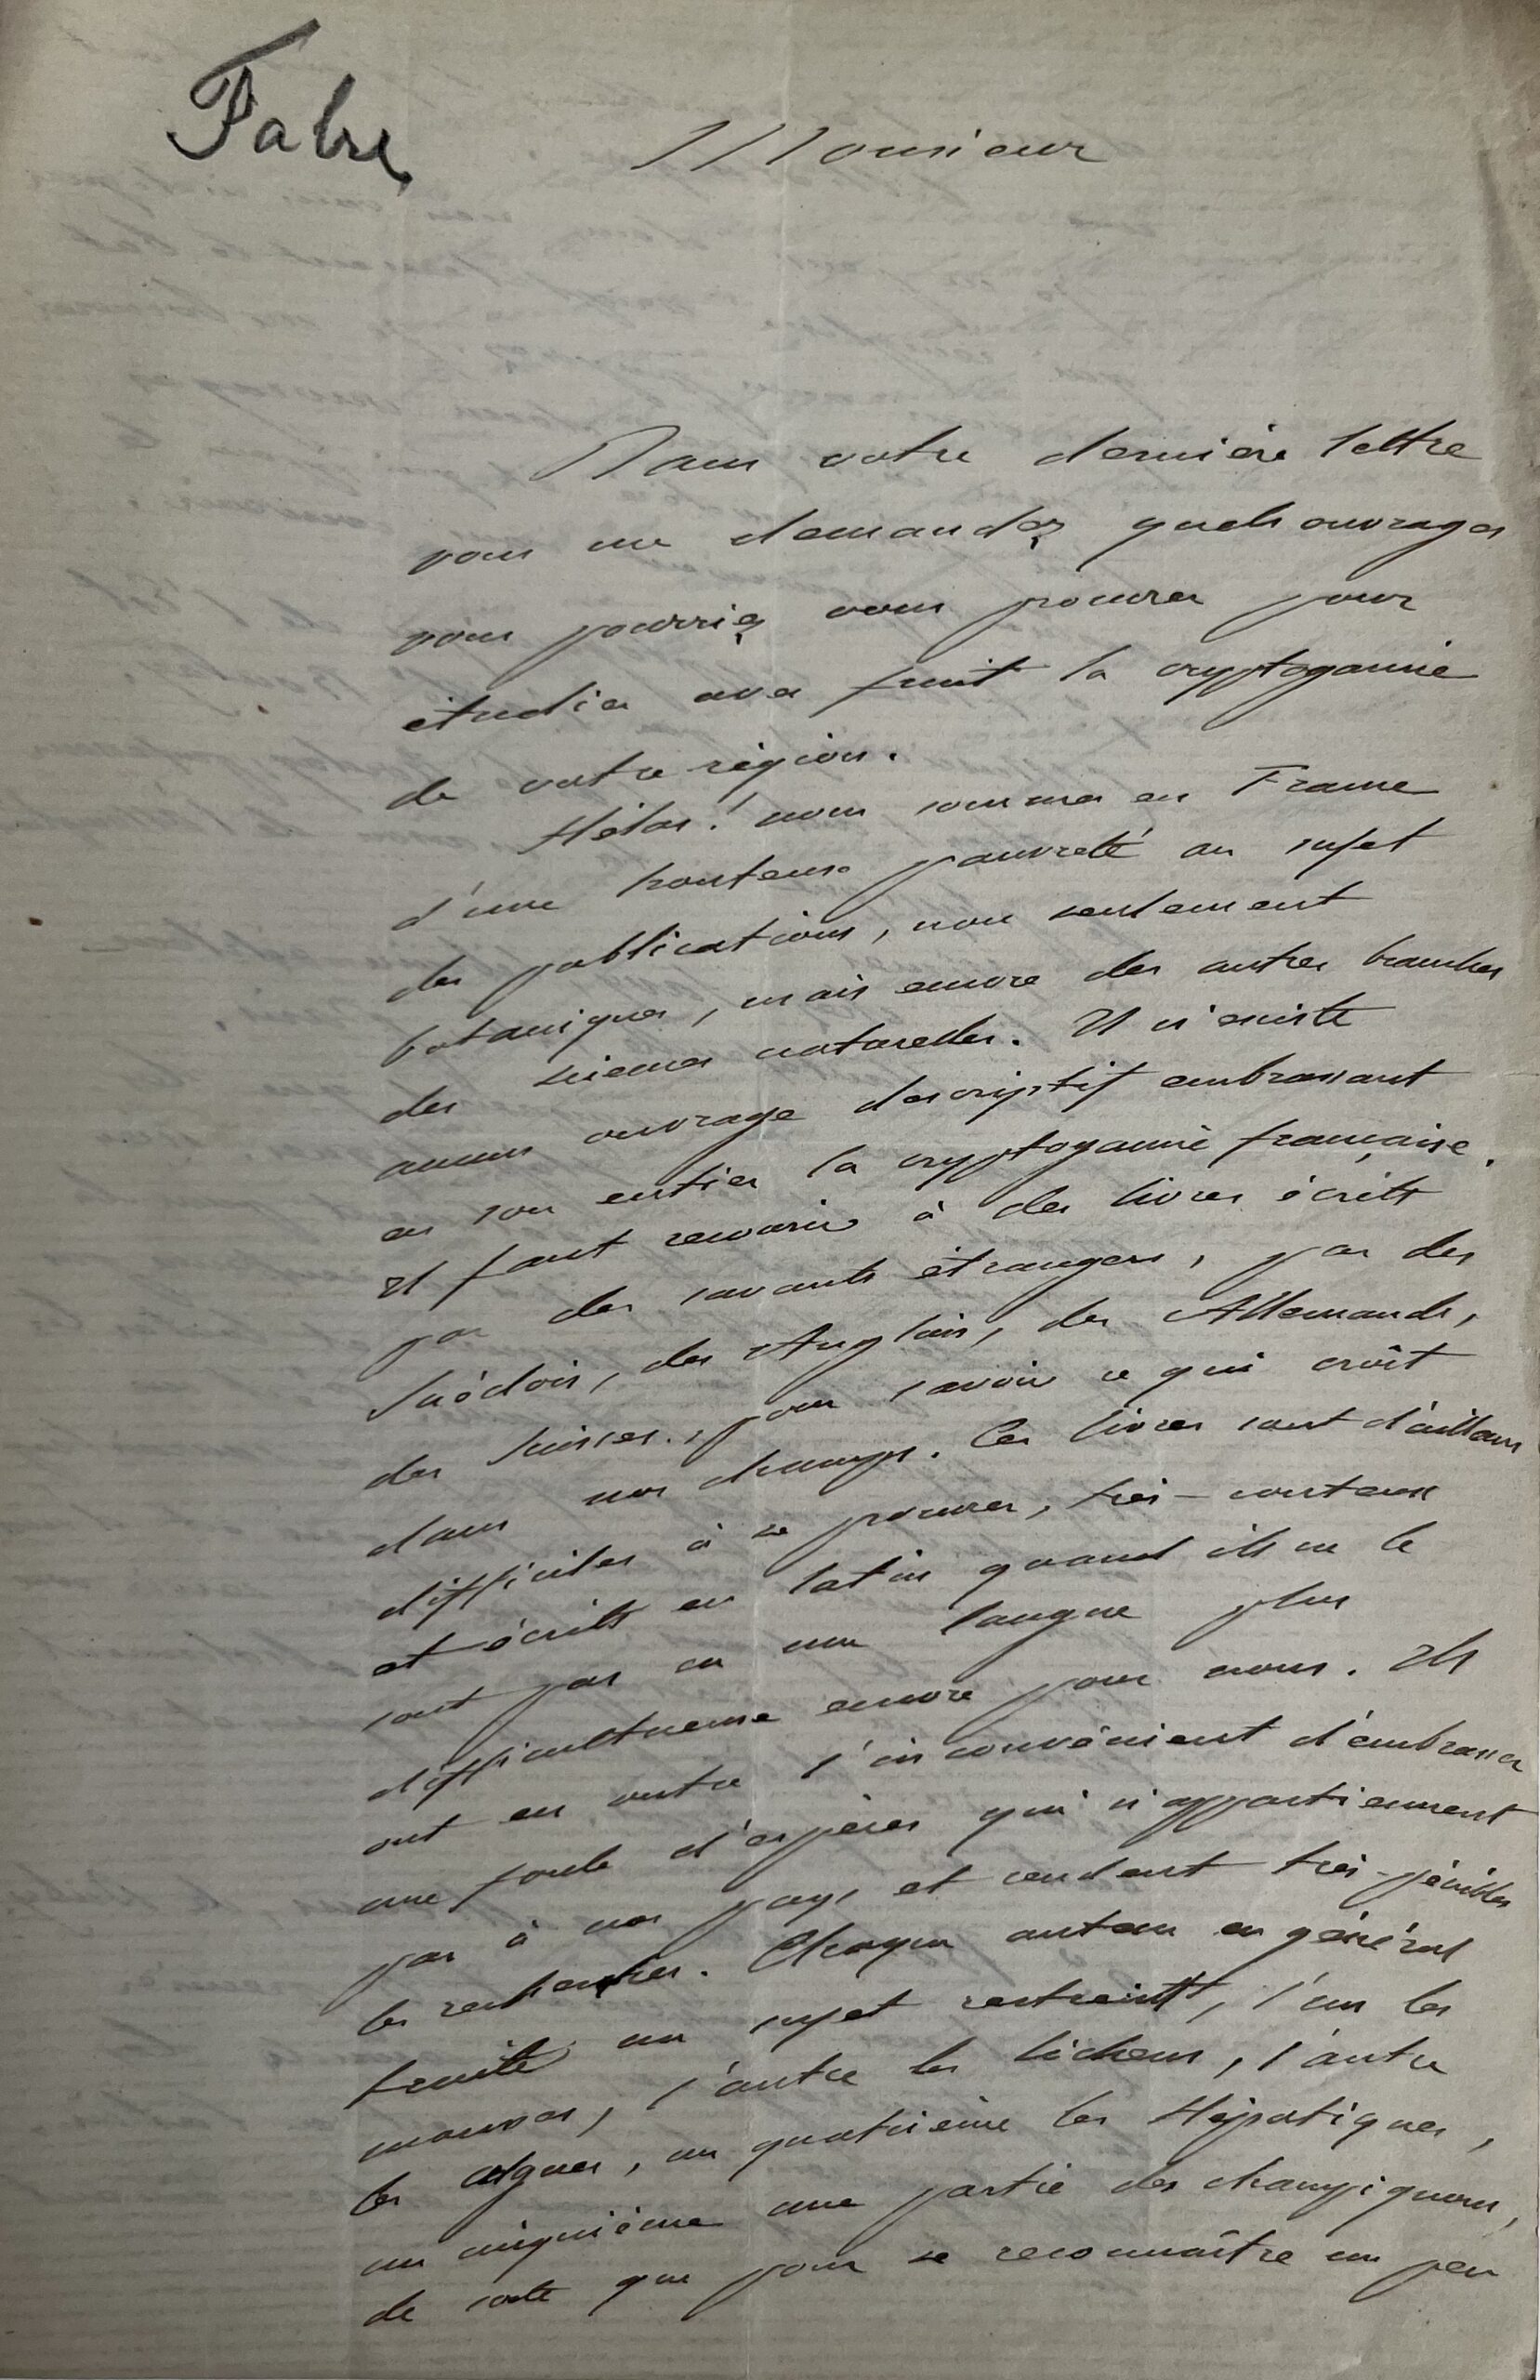 Fabre
Monsieur
Dans votre dernière lettre
vous me demandez quels ouvrages
vous pourriez vous procurer pour
étudier avec fruit la cryptogamie
de votre région.
Hélas! nous sommes en France
d'une honteuse pauvreté au sujet
des publications, non seulement
botaniques, mais encore des autres branches
des sciences naturelles. Il n'existe
aucun ouvrage descriptif embrassant
en son entier la cryptogamie française.
Il faut recourir à des livres écrits
par des savants étrangers, par des
Suédois, des Anglais, des Allemands,
des Suisses, pour savoir ce qui croît
dans nos champs. Ces livres sont d'ailleurs
difficiles à se procurer, très-couteux
et écrits en latin quand ils ne le
sont pas en une langue plus
difficultueuse encore pour nous. Ils
ont en outre l'inconvénient d'embrasser
une foule d'espèces qui n'appartiennent
pas à nos pays et rendent très-pénibles
les recherches. Chaque auteur en général
traite un sujet restreint, l'un les
mousses, l'autre les lichens, l'autre
les algues, un quatrième les Hépatiques,
un cinquième une partie des champignons,
de sorte que pour se reconnaître un peu